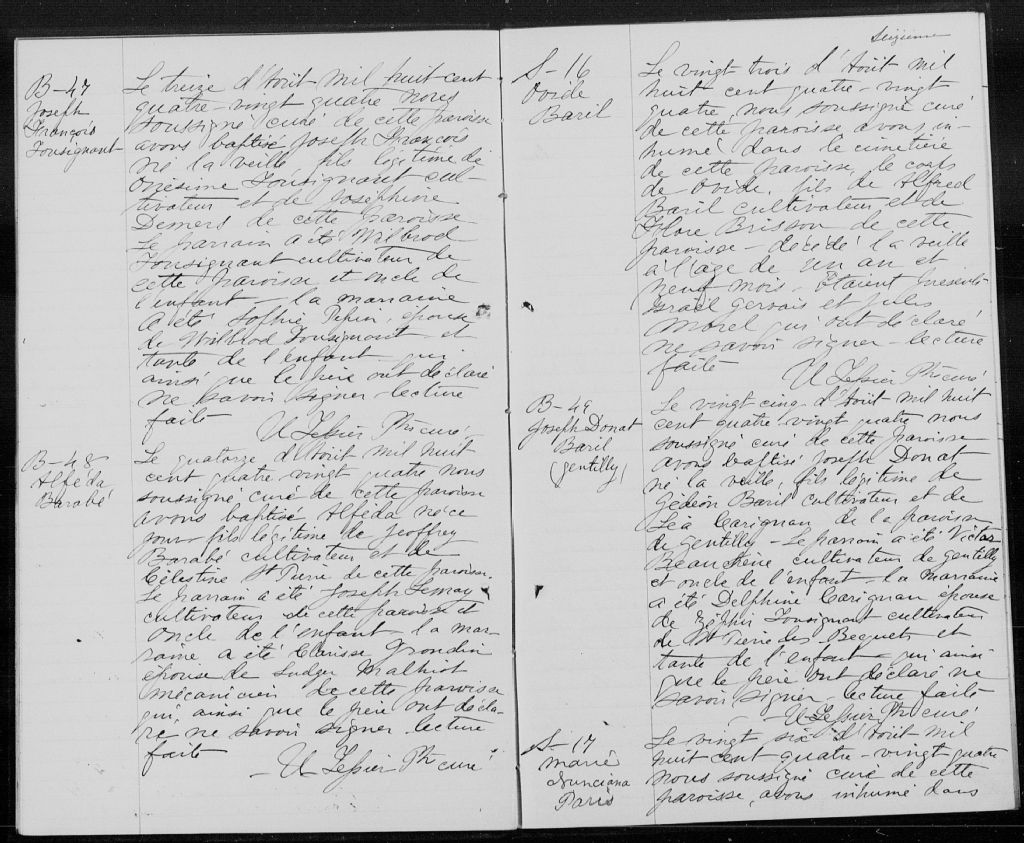 B-47
Joseph
François
Tousignant
Le treize d'Août mil huit cent
quatre-vingt quatre nous
soussigné curé de cette paroisse
avons baptisé Joseph François
né la veille fils légitime de
Onésime Tousignant cul-
tivateur et de Joséphine
Demers de cette paroisse
Le parrain a été Wilbrod
Tousignant cultivateur de
cette paroisse et oncle de
l'enfant - la marraine
a été Sophie Pepin, épouse
de Wilbrod Tousignant et
tante de l'enfant qui
ainsi que le père ont déclaré
ne savoir signer - lecture
faite
U Tessier Ptr curé
B-48
Alféda
Barabé
Le quatorze d'Août mil huit
cent quatre vingt quatre nous
soussigné curé de cette paroisse
avons baptisé Alféda née ce
jour fils légitime de Geoffrey
Barabé cultivateur et de
Célestine St Pierre de cette paroisse.
Le parrain a été Joseph Lemay
cultivateur de cette paroisse et
oncle de l'enfant la mar-
raine a été Clarisse Grondin
épouse de Ludger Mailhiot
mécanicien de cette paroisse
qui, ainsi que le père ont décla-
ré ne savoir signer. lecture
faite
U Tessier Ptr curé
Seizième
S-16
Ovide
Baril
Le vingt trois d'Août mil
huit cent quatre-vingt
quatre, nous soussigné curé
de cette paroisse, avons in-
humé dans le cimetière
de cette paroisse, le corps
de Ovide, fils de Alfred
Baril cultivateur et de
Flore Brisson de cette
paroisse - décédé la veille
à l'âge de un an et
neuf mois. Étaient présents
Israël Gervais et Jules
Morel qui ont déclaré
ne savoir signer - lecture
faite
U Tessier Ptr curé
B-49
Joseph Donat
Baril
(Gentilly)
Le vingt cinq d'Août mil huit
cent quatre vingt quatre nous
soussigné curé de cette paroisse
avons baptisé Joseph Donat
né la veille, fils légitime de
Gédéon Baril cultivateur et de
Léa Carignan de la paroisse
de Gentilly - Le parrain a été Victor
Beauchêne cultivateur de Gentilly
et oncle de l'enfant - la marraine
a été Delphine Carignan épouse
de Zéphir Tousignant cultivateur
de St Pierre des Becquets et
tante de l'enfant - qui ainsi
que le père ont déclaré ne
savoir signer - lecture faite
U Tessier Ptr curé
S-17
Marie
Paris
Le vingt six d'Août mil
huit cent quatre-vingt quatre
nous soussigné curé de cette
paroisse, avons inhumé dans